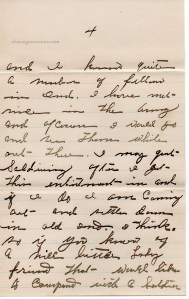 4
and I know quite
a number of fellow
in Ind. I have met
since in the army
and of course I would go
and see them while
out there. I may get
this enlistment in and
if I do I am coming
out and settle down
in old Ind. I think.
so if you know of
a nice little lady
friend that would like
to correspond with a Soldier